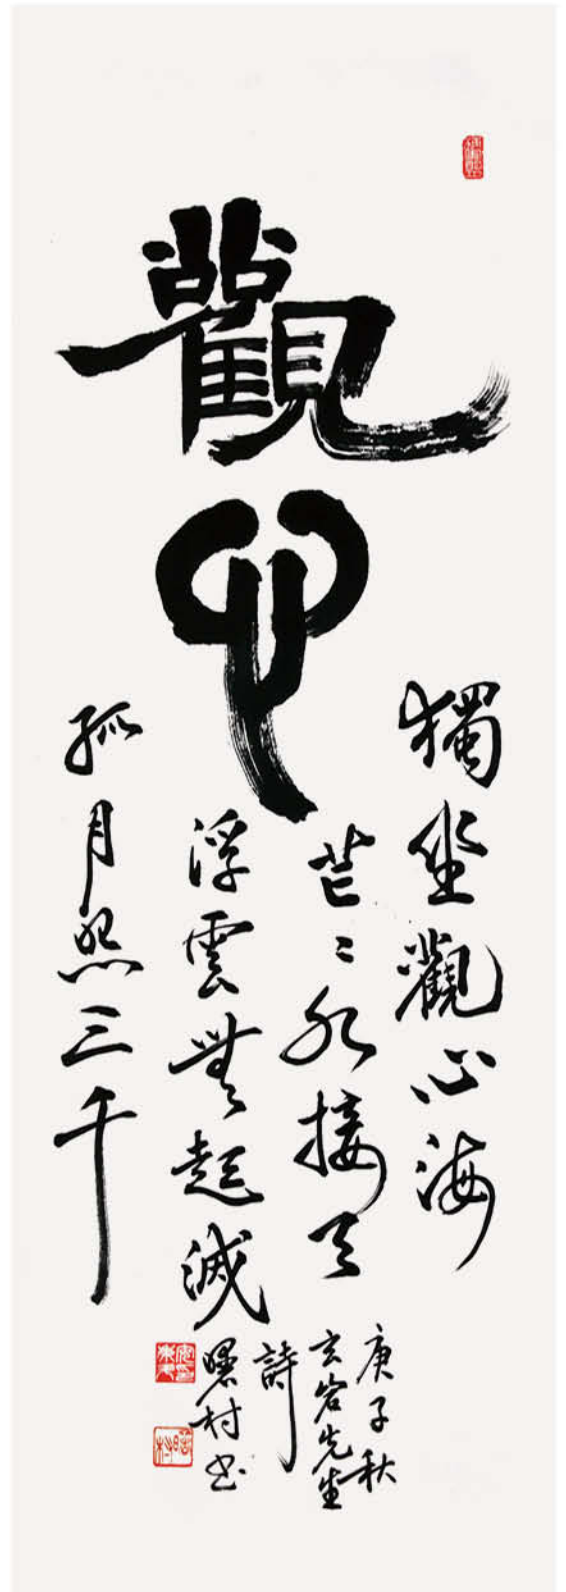 觀心
獨坐觀心海
茫〻水接天
浮雲無起滅
孤月照三千
庚子秋
玄岩先生
詩
曙村书